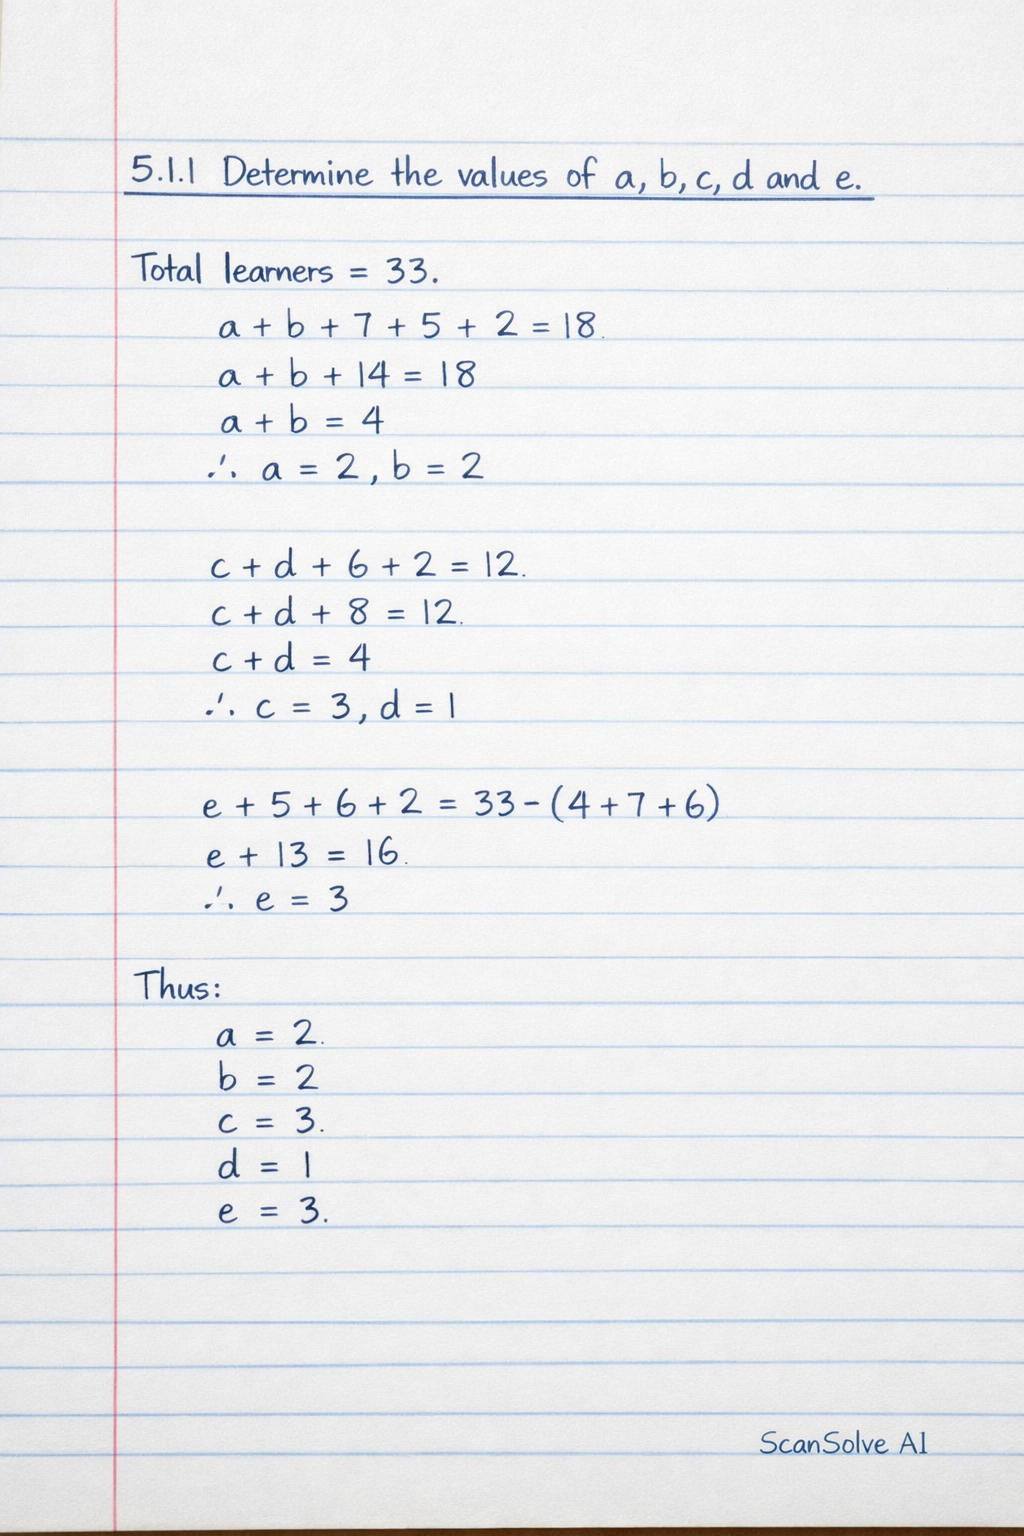 5.1.1 Determine the values of a, b, c, d and e.
Total learners = 33.
a + b + 7 + 5 + 2 = 18.
a + b + 14 = 18
a + b = 4
∴ a = 2, b = 2
c + d + 6 + 2 = 12.
c + d + 8 = 12.
c + d = 4
∴ c = 3, d = 1
e + 5 + 6 + 2 = 33 - (4 + 7 + 6)
e + 13 = 16.
∴ e = 3
Thus:
a = 2.
b = 2
c = 3.
d = 1
e = 3.
ScanSolve AI